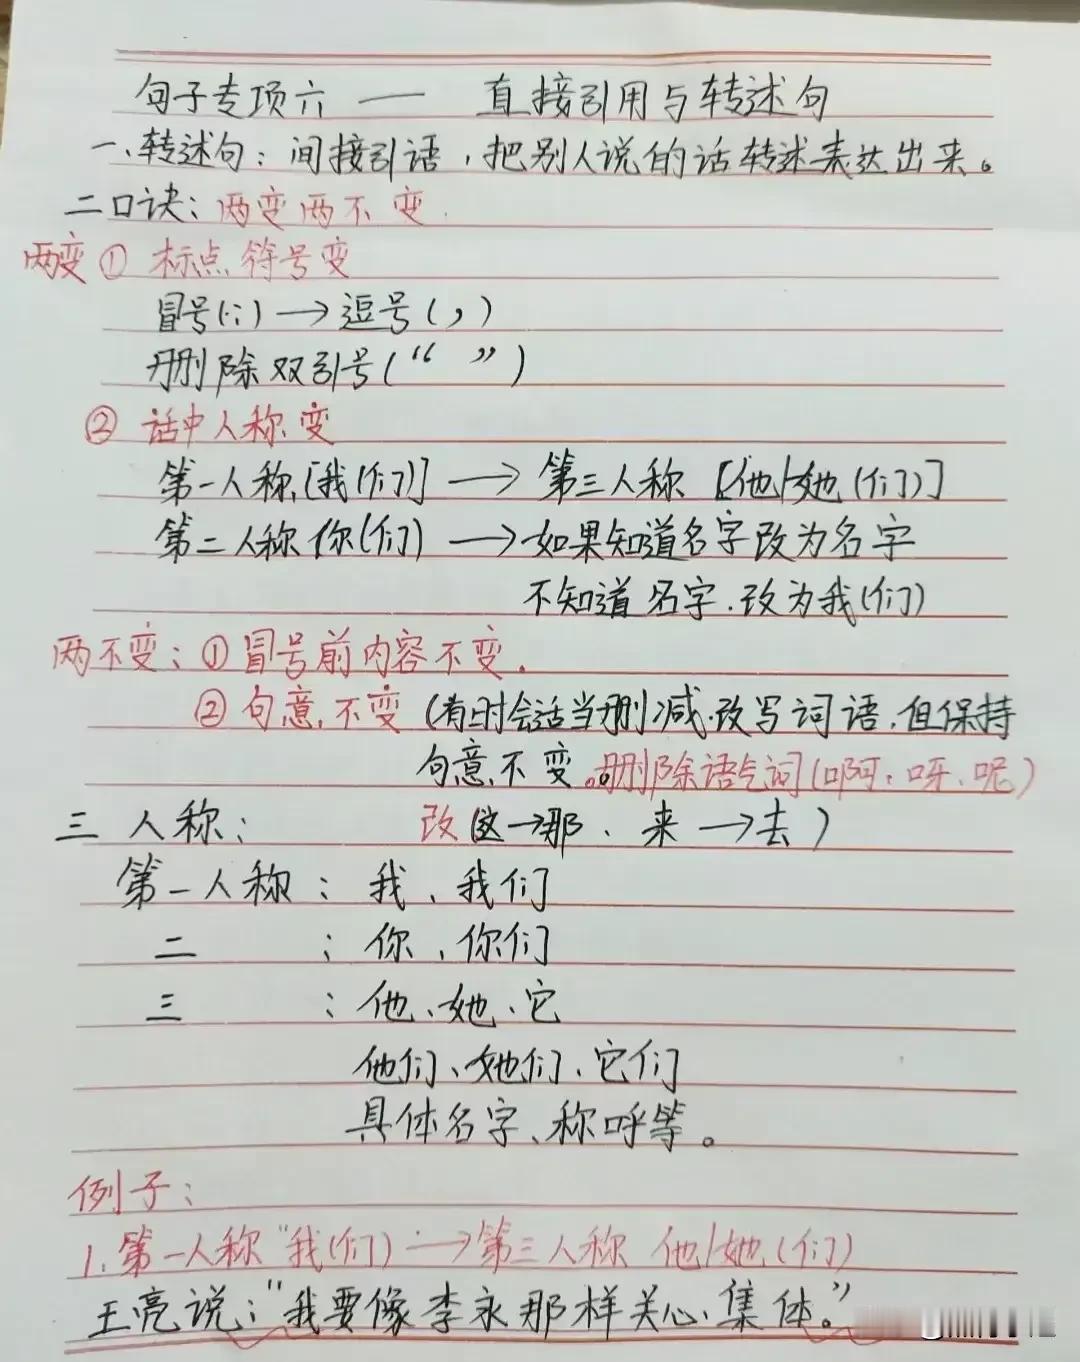 句子专项六 — 直接引用与转述句
一、转述句：间接引语，把别人说的话转述表达出来。
二口诀：两变两不变.
两变① 标点符号变
冒号(：)→逗号(，)
删除双引号(“ ”)
② 话中人称变
第一人称[我(们)] → 第三人称[他/她(们)]
第二人称你(们) → 如果知道名字改为名字
不知道名字.改为我(们)
两不变：①冒号前内容不变.
②句意不变(有时会适当删减.改写词语.但保持
句意不变。删除语气词(啊、呀、呢)
三 人称： 改(这→那. 来→去)
第一人称：我、我们
二 ：你、你们
三 ：他、她、它
他们、她们、它们
具体名字、称呼等。
例子：
1.第一人称“我(们) → 第三人称 他/她(们)
王亮说：“我要像李永那样关心集体。”